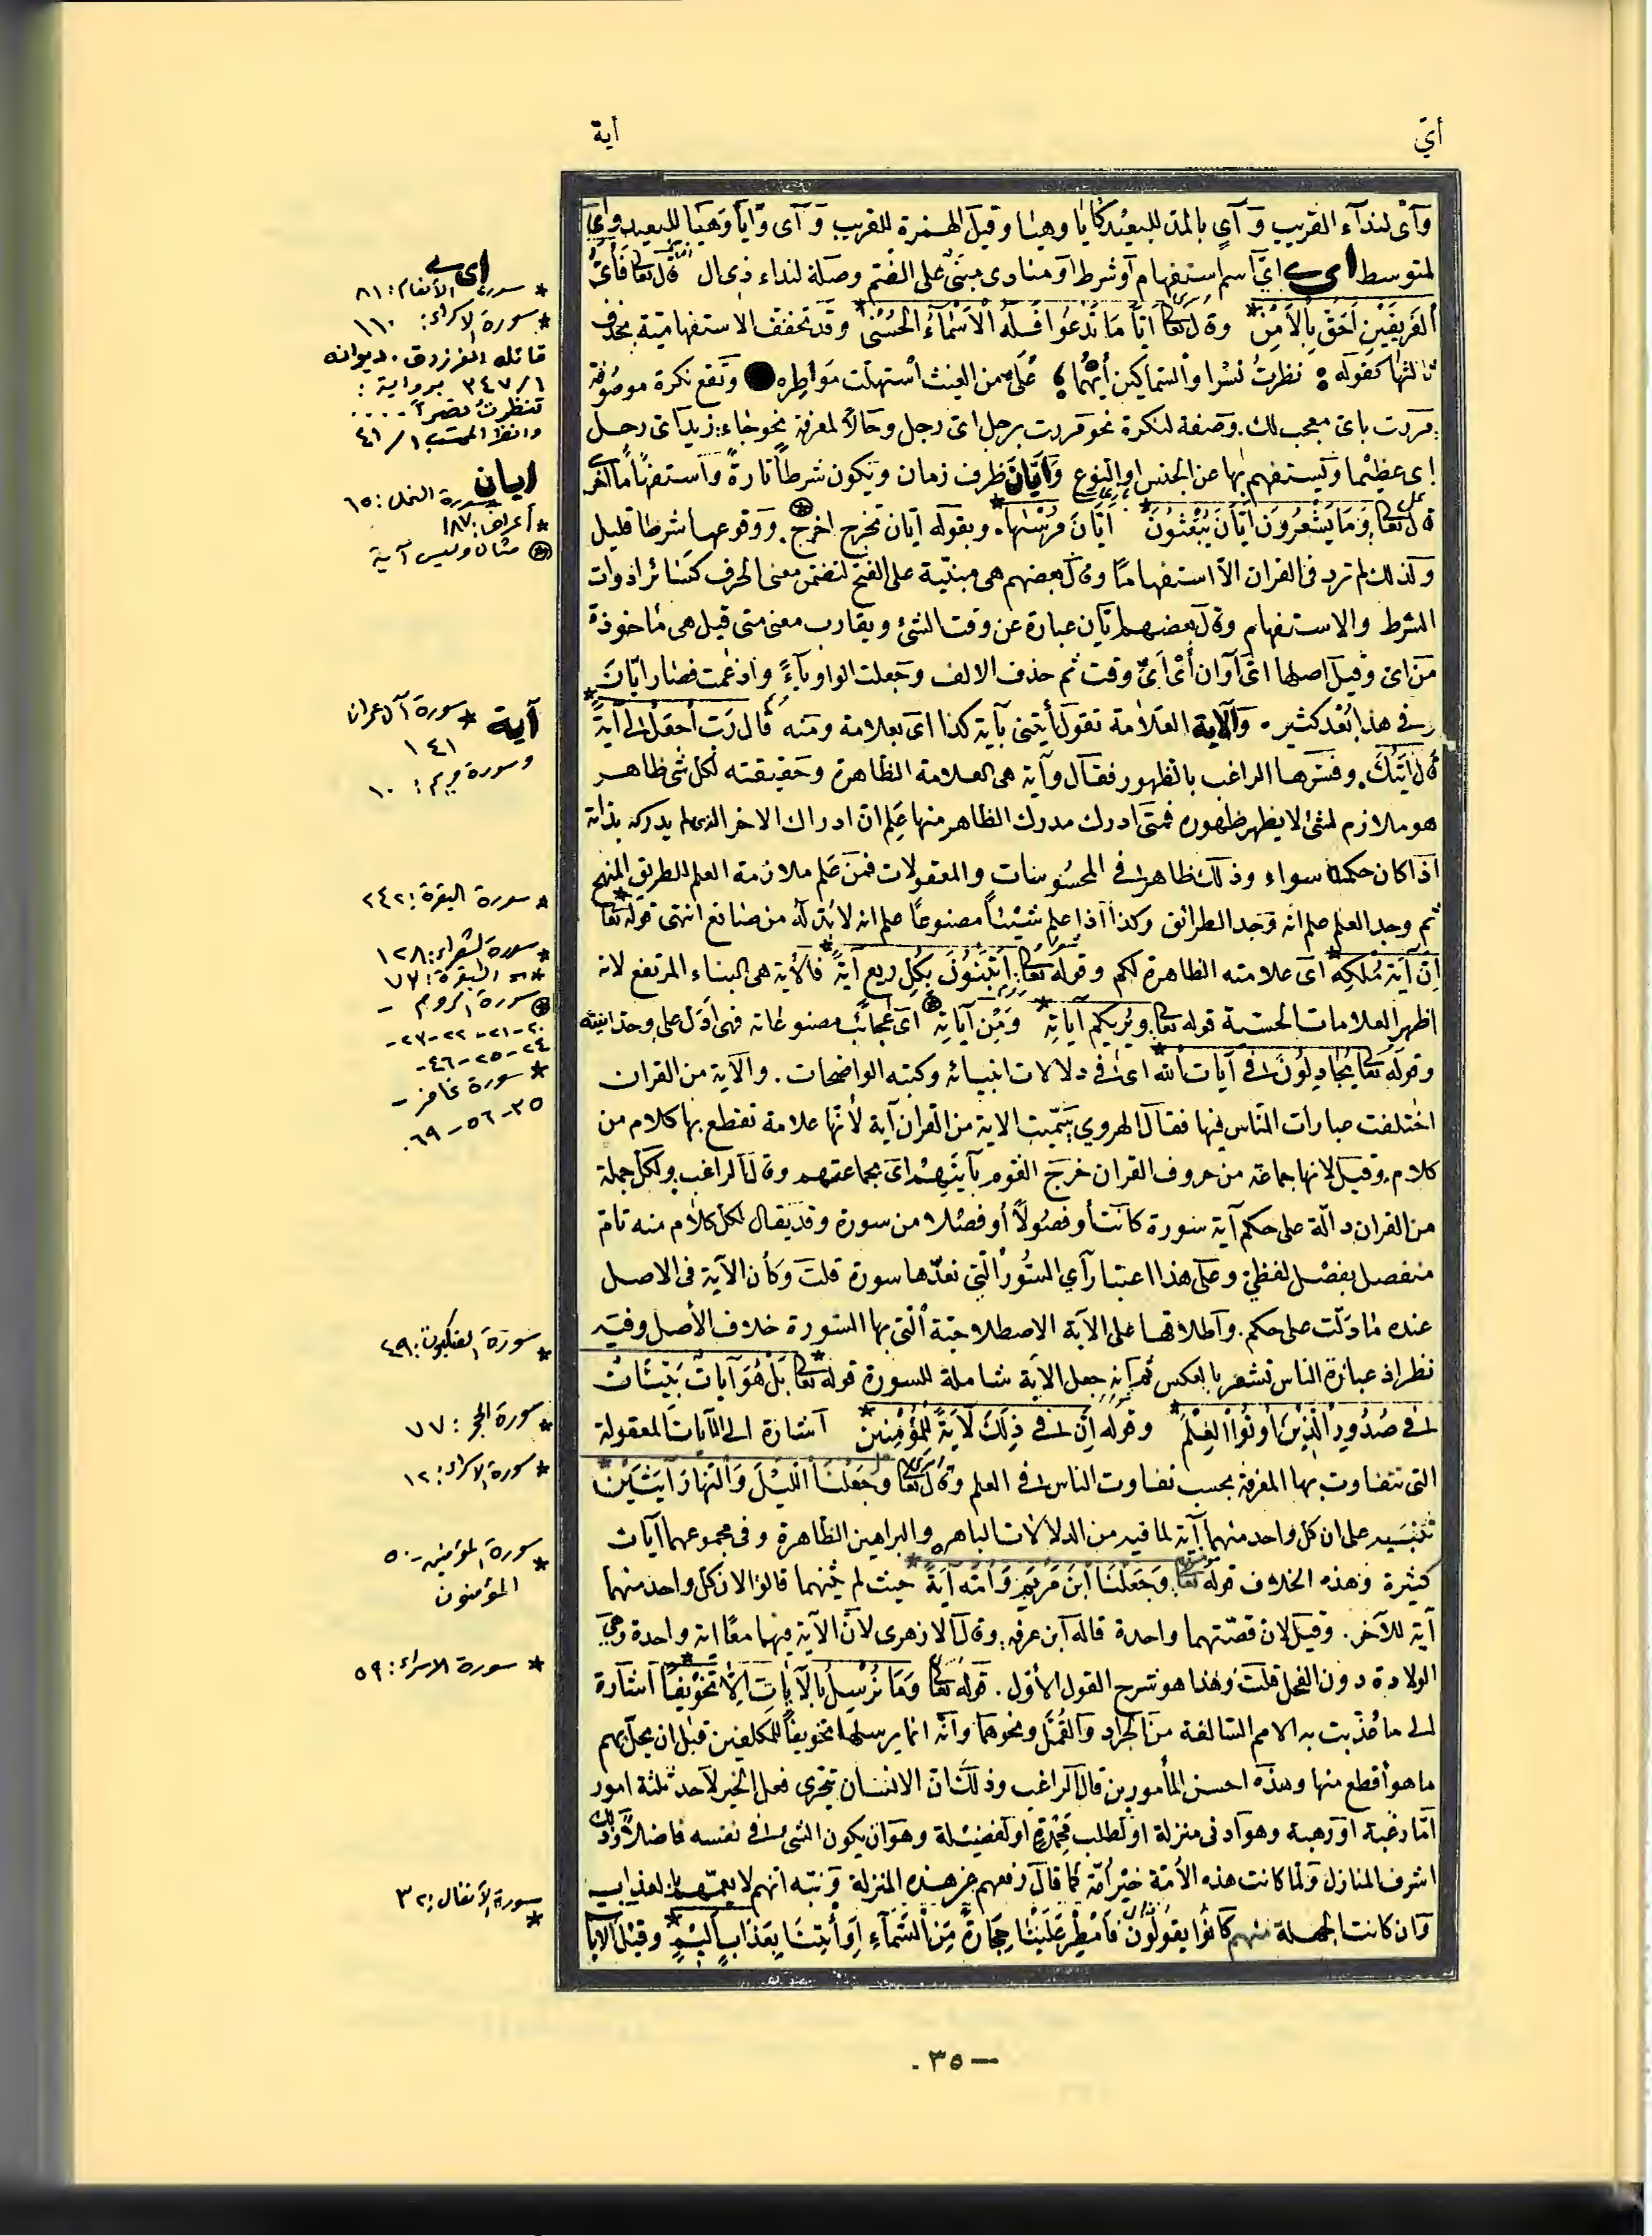 أيّ
أية
وَآىْ لنداء القريب وَآي بالمد للبعيد كأيا وهيا وقيل الهمزة للقريب وَآى وَأيا وَهَيا للبعيد وَاي
لمتوسط اى اىّ اسم استفهام أو شرط أو منادى مبنىّ على الضم وصلة لنداء ذى ال قال تعا فَأَىُّ
الفَرِيقَيْنِ اَحَقُّ بِالاَمْنِ وقال تعا ايَّاً مَا تَدْعُوا فَلَهُ الْاَسْمَاءُ الحُسْنَى وقد تخفف الاستفهامية بحذف
ثالثها كقوله نظرتُ نسْرا والسماكين أَيْهُمَا عَلىّ من الغيث استهلت مَوَاطِره وتقع نكرة موصوفة
مررت باىّ معجب لك. وصفة لنكرة نحو مررت برجل اىّ رجل وحالا لمعرفة نحو جاء زيد اىّ رجل
اى عظيما ويستفهم بها عن الجنس او النوع وَاَيَّانَ ظرف زمان ويكون شرطاً تارةً واستفهاماً اخرى
قال تعا وَمَا يَشْعُرُونَ ايّانَ يُبْعَثُونَ ايَّانَ مُرْسَاهَا. وبقوله ايّان تخرج اخرج. ووقوعها شرطا قليل
ولذلك لم ترد فى القران الا استفهاما وقال بعضهم هى مبنيّة على الفتح لتضمن معنى الحرف كسائر ادوات
الشرط والاستفهام وقال بعضهم ايّان عبارة عن وقت الشئ ويقارب معنى متى قيل هى مأخوذة
من اىّ وقيل اصلها اىّ آوان أىْ اَىّ وقت ثم حذف الالف وجعلت الواو ياءً وادغمت فصار ايّانَ
وفى هذا بُعْد كثير. وَالآية العَلامة تقول أيتنى بآية كذا اى بعلامة ومنه قال رَبّ اجْعَل لى آيةً
قال آيَتُكَ. وفسّرها الراغب بالظهور فقال وآية هى العلامة الظاهرة وحقيقته لكل شئ ظاهر
هو ملازم لشئ لا يظهر ظهوره فمتى ادرك مدرك الظاهر منها علم ان ادراك الاخر الذى لم يدركه بذاته
اذا كان حكمها سواء وذلك ظاهر فى المحسوسات والمعقولات فمن علم ملازمة العلم للطريق المنهج
ثم وجد العلم علم انه وجد الطرائق وكذا اذا علم شيئاً مصنوعًا علم انه لا بُدّ له من صانع انتهى قوله تعا
اِنَّ آيَةَ مُلْكِهِ اى علامته الظاهرة لكم وقوله تعا: أَتَبْنُونَ بِكُلِ رِيعٍ آيَةً فالآية هى البناء المرتفع لانه
اظهر العلامات الحسّية قوله تعا. ويُرِيكم آيَاتِهِ وَمِنْ آيَاتِهِ اى عجائب مصنوعاته فهى أدَل على وحدانيته
وقوله تعا يُجَادِلُونَ فى آيات الله اى فى دلالات انبيائه وكتبه الواضحات. والآية من القران
اختلفت عبارات النّاس فيها فقال الهروي سمّيت الاية من القران آية لأنّها علامة تقطع بها كلام من
كلام. وقيل لانها جماعة من حروف القران خرج القوم بآيَتِهِمْ اى بجماعتهم وقال الراغب ولكل جملة
من القران دالّة على حكم آية سورة كانت أو فصُولاً أو فصْلا من سورة وقد يقال لكل كلام منه تامّ
منفصل بفصْل لفظىّ وعلى هذا اعتبار آي السُّوَر الَّتى تعدّها سورة قلت وكأن الآية فى الاصل
عنده ما دَلّت على حكم. واطلاقها على الآية الاصطلاحيّة التى بها السّورة خلاف الأصل وفيه
نظر اذ عبارة الناس تشعر بالعكس ثم انه جعل الآية شاملة للسورة قوله تعا بَلْ هُوَ آيَاتٌ بَيِّنَاتٌ
فى صُدُورِ الَّذِينَ اُوتُوا العِلْمَ وقوله اِنّ فى ذلِكَ لَآيَةً لِلْمُؤْمِنِينَ اشارة الى الآيات المعقولة
التى تتفاوت بها المعرفة بحسب تفاوت الناس فى العلم وقال تعا وَجَعَلْنَا اللَّيْلَ وَالنَّهَارَ آيَتَيْنِ
تنبيه على ان كل واحد منهما آية لما فيه من الدلالات الباهره والبراهين الظاهرة وفى مجموعهما آيات
كثيرة وهذه الخلاف قوله تعا. وَجَعَلْنَا ابْنَ مَرْيَمَ وَاُمَّه آيَةً حيث لم يثنهما قالوا لان كل واحد منهما
آية للآخر. وقيل لان قصّتهما واحدة قاله ابن عرفة. وقال الازهرى لانّ الآية فيهما معًا اية واحدة وهى
الولادة دون الفحل قلت وهذا هو شرح القول الأوّل. قوله تعا وَمَا نُرْسِلُ بِالْآيَاتِ اِلَّا تَخْوِيفًا اشارة
الى ما عُذّبت به الامم السّالفة من الجراد والقُمّل ونحوهما وانّه انما يرسلها تخويفاً للمكلفين قبل ان يحل بهم
ما هو أفظع منها وهذه احسن المأمورين قال الراغب وذلك ان الانسان يتحرى فعل الخير لأحد ثلثة امور
امّا رغبة او رَهبة وهو أدنى منزلة او لطلب محْمَدةٍ او لفضيلة وهو ان يكون الشئ فى نفسه فاضلاً وذلك
اشرف المنازل وَلمّا كانت هذه الأمّة خيْر أمّة كما قال رفعهم عن هذه المنزلة ونبّه انّهم لا يعمّهم بالعذاب
وَان كانت الجهلة منهم كانُوا يقولُون فَاَمْطِرْ عَلَيْنَا حِجَارَةً مِنَ السَّمَاءِ اَوِ أْتِنَا بِعَذَابٍ اَلِيمٍ وقيل الآيا
اى
* سورة الأنعام: ٨١
* سورة الاسراء: ١١٠
قائله الفرزدق. ديوانه
٣٤٧/١ برواية:
تنظرتُ نصرًا .....
وانظر المحتسب ١/ ٤١
ايان
* سورة النمل: ٦٥
* أعراف: ١٨٧
مثال وليس آية
آية * سورة آل عمران
١٤١
وسورة مريم: ١٠
* سورة البقرة: ٢٤٢
* سورة الشعراء: ١٢٨
** البقرة: ٧٧
سورة الروم -
٢٠-٢١-٢٢-٢٣-
٢٤-٢٥-٤٦-
* سورة غافر -
٣٥-٥٦-٦٩.
* سورة العنكبوت: ٤٩
* سورة الحجر: ٧٧
* سورة الاسراء: ١٢
* سورة المؤمنين ٥٠
المؤمنون
* سورة الاسراء: ٥٩
* سورة الأنفال: ٣٢
- ٣٥ .